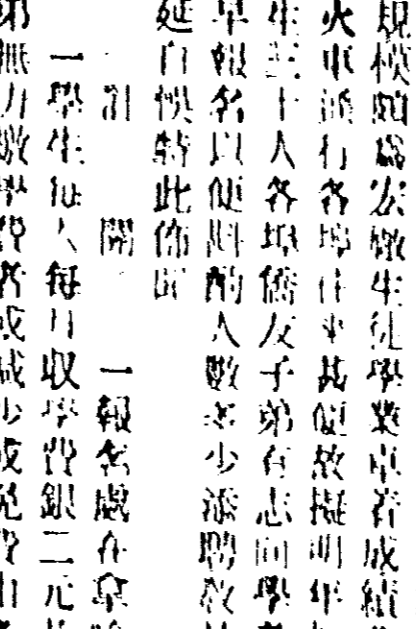 規模頗為宏敞生徒學業卓著成績
火車通行各埠往來甚便故擬明年
生三十人各埠僑友子弟有志向學
早報名以便酌人數多少添聘教
延自悞特此佈
計開一報名處在
一學生每人每月收學費銀二元
弟無力繳學費者或減少或免費由